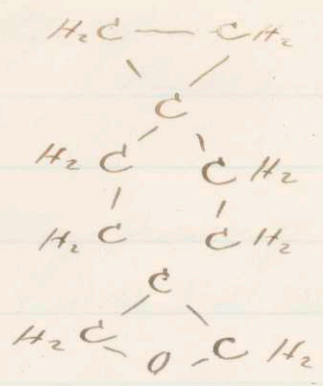 H₂C — CH₂
C
H₂C CH₂
H₂C CH₂
C
H₂C CH₂
O